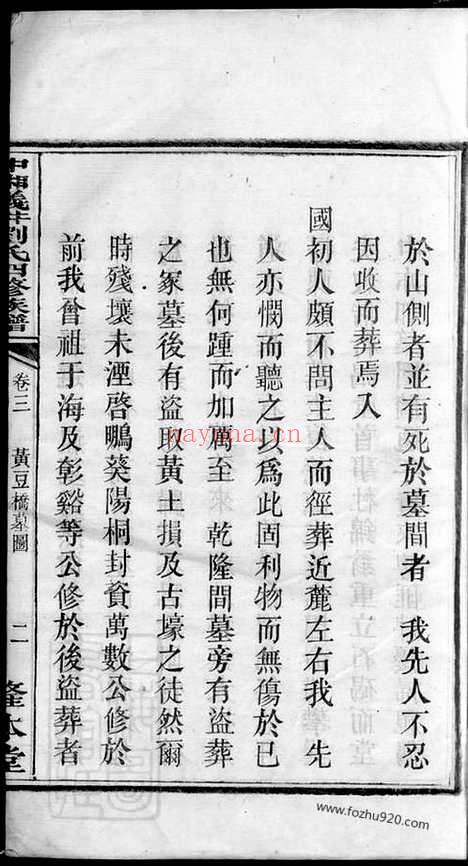 於山側者並有死於墓間者　我先人不忍
因收而葬焉入
國初人頗不問主人而徑葬近麓左右我　先
人亦憫而聽之以為此固利物而無傷於已
也無何踵而加厲至　乾隆間墓旁有盜葬
之冢墓後有盜取黃土損及古壕之徒然爾
時殘壞未湮啓鵬葵陽桐封資萬數公修於
前我曾祖于海及彰谿等公修於後盜葬者
中湘義井劉氏四修族譜
卷三
黃豆橋墓圖
二
隆本堂
nayona.cn
www.fozhu920.com